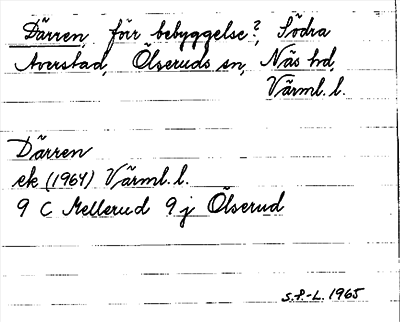 Därren, förr bebyggelse?, Södra
Averstad, Ölseruds sn, Näs hd,
Värml. l.
Därren
ek (1964) Värml. l.
9 C Mellerud 9 j Ölserud
S.P.-L. 1965